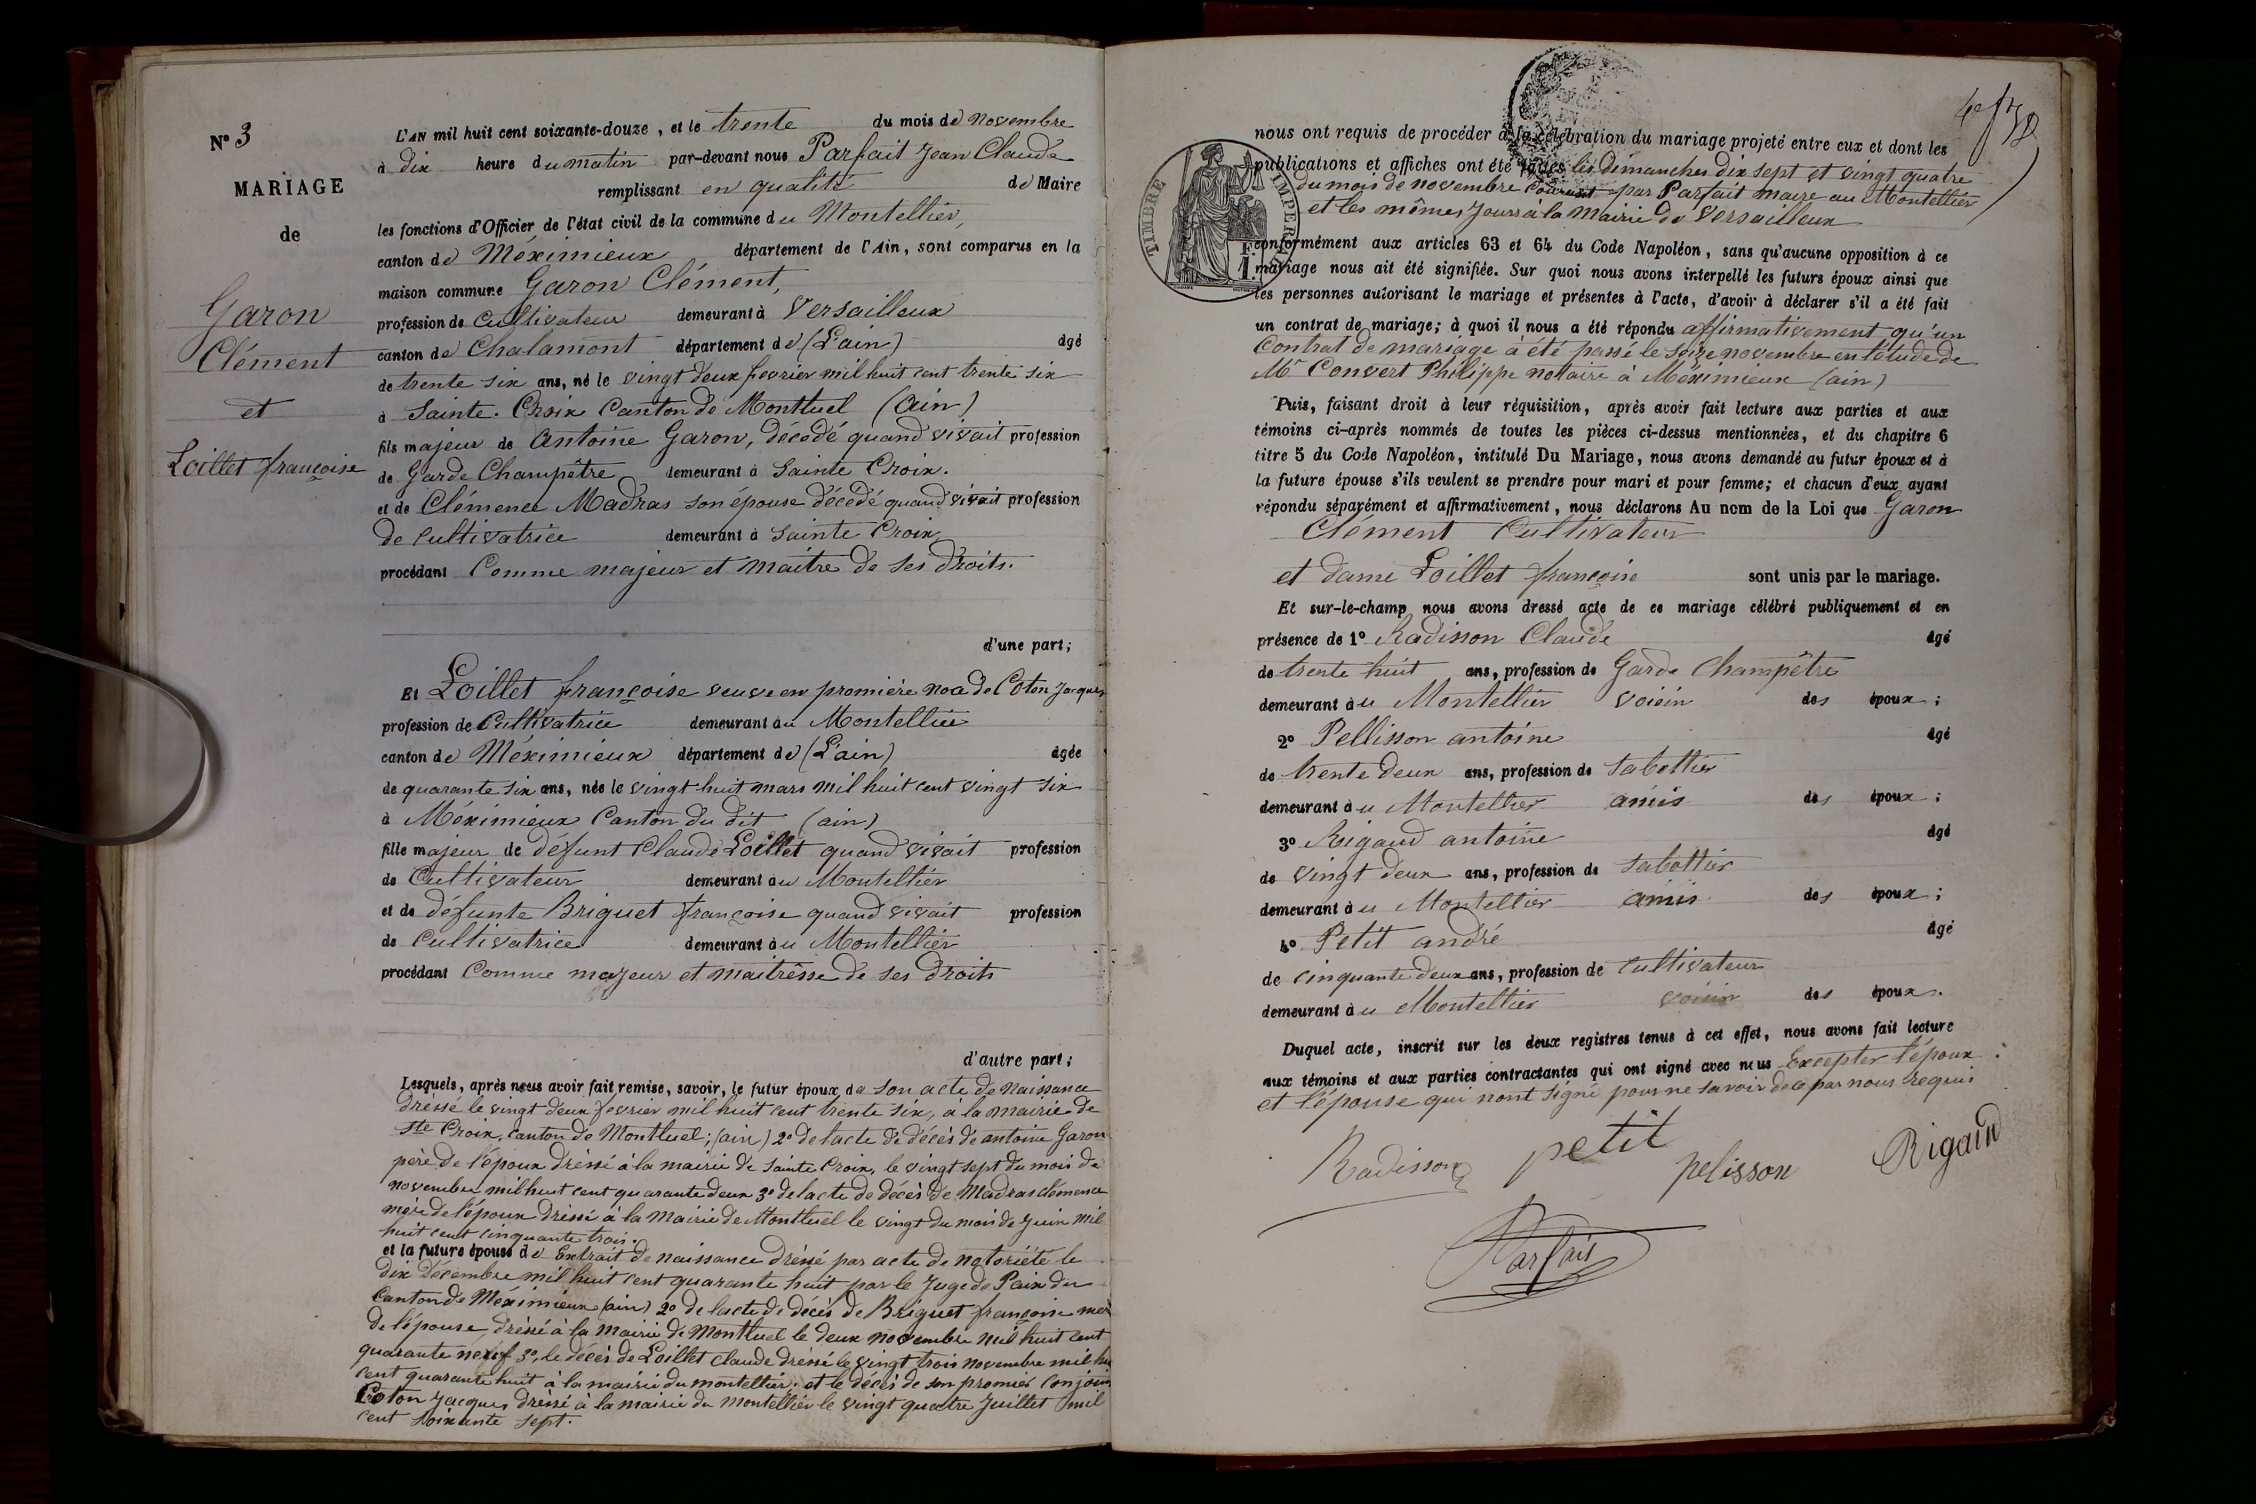 N° 3
MARIAGE
de
Garon
Clément
et
Loillet françoise
L'AN mil huit cent soixante-douze, et le trente du mois de novembre
à dix heure du matin par-devant nous Parfait Jean Claude
remplissant en qualité de Maire
les fonctions d'Officier de l'état civil de la commune du Montellier,
canton de Méximieux département de l'Ain, sont comparus en la
maison commune Garon Clément,
profession de Cultivateur demeurant à Versailleux
canton de Chalamont département de (L'ain) âgé
de trente six ans, né le vingt deux fevrier mil huit cent trente six
à Sainte. Croix Canton de Montluel (Ain)
fils majeur de Antoine Garon, décédé quand vivait profession
de Garde Champêtre demeurant à Sainte Croix.
et de Clémence Madras son épouse décédé quand vivait profession
de Cultivatrice demeurant à Sainte Croix
procédant Comme majeur et maitre de ses droits.
d'une part;
Et Loillet françoise veuve en première noce de Coton Jacques
profession de Cultivatrice demeurant au Montellier
canton de Méximieux département de (L'ain) âgée
de quarante six ans, née le vingt huit mars mil huit cent vingt six
à Méximieux Canton du dit (ain)
fille majeur de défunt Claude Loillet quand vivait profession
de Cultivateur demeurant au Montellier
et de défunte Briguet françoise quand vivait profession
de Cultivatrice demeurant au Montellier
procédant Comme majeur et maitrèsse de ses droits
d'autre part;
Lesquels, après nous avoir fait remise, savoir, le futur époux de son acte de naissance
dréssé le vingt deux fevrier mil huit cent trente six, à la mairie de
Ste Croix, canton de Montluel; (ain) 2° de lacte de décès de antoine Garon
père de l'époux dréssé à la mairie de Sainte Croix, le vingt sept du mois de
novembre mil huit cent quarante deux 3° de lacte de décès de Madras clémence
mère de l'époux dréssé à la Mairie de Montluel le vingt du mois de Juin mil
huit cent cinquante trois.
et la future épouse de Extrait de naissance dréssé par acte de notoriété le
dix Décembre mil huit cent quarante huit par le Juge de Paix du
Canton de Méximieux (ain) 2° de lacte de décès de Briguet françoise mère
de l'épouse, dréssé à la mairie de Montluel le deux novembre mil huit cent
quarante neuf 3°, le décès de Loillet Claude dréssé le vingt trois novembre mil hu
cent quarante huit à la mairie du montellier. et le décès de son premier Conjoin
Coton Jacques dréssé à la mairie du Montellier le vingt quatre Juillet mil
cent soixante sept.
TIMBRE IMPERIAL
nous ont requis de procéder à la célébration du mariage projeté entre eux et dont les
publications et affiches ont été faites les dimanches dix sept et vingt quatre
du mois de novembre Courant par Parfait maire au Montellier
et les mêmes Jours à la Mairie de Versailleux
conformément aux articles 63 et 64 du Code Napoléon, sans qu'aucune opposition à ce
mariage nous ait été signifiée. Sur quoi nous avons interpellé les futurs époux ainsi que
les personnes autorisant le mariage et présentes à l'acte, d'avoir à déclarer s'il a été fait
un contrat de mariage; à quoi il nous a été répondu affirmativement qu'un
Contrat de mariage à été passé le seize novembre en l'étude de
Mr Convert Philippe nottaire à Méximieux (ain)
Puis, faisant droit à leur réquisition, après avoir fait lecture aux parties et aux
témoins ci-après nommés de toutes les pièces ci-dessus mentionnées, et du chapitre 6
titre 5 du Code Napoléon, intitulé Du Mariage, nous avons demandé au futur époux et à
la future épouse s'ils veulent se prendre pour mari et pour femme; et chacun d'eux ayant
répondu séparément et affirmativement, nous déclarons Au nom de la Loi que Garon
Clément Cultivateur
et dame Loillet françoise sont unis par le mariage.
Et sur-le-champ nous avons dressé acte de ce mariage célébré publiquement et en
présence de 1° Radisson Claude âgé
de trente huit ans, profession de Garde Champêtre
demeurant au Montellier voisin des époux;
2° Pellisson antoine âgé
de trente deux ans, profession de Sabottier
demeurant au Montellier amis des époux;
3° Rigaud antoine âgé
de vingt deux ans, profession de Sabottier
demeurant au Montellier amis des époux;
4° Petit andré âgé
de cinquante deux ans, profession de Cultivateur
demeurant au Montellier voisin des époux.
Duquel acte, inscrit sur les deux registres tenus à cet effet, nous avons fait lecture
aux témoins et aux parties contractantes qui ont signé avec nous Excepter l'époux
et l'épouse qui nont signé pour ne savoir de ce par nous requis
Radisson petit pelisson Rigaud
Parfait